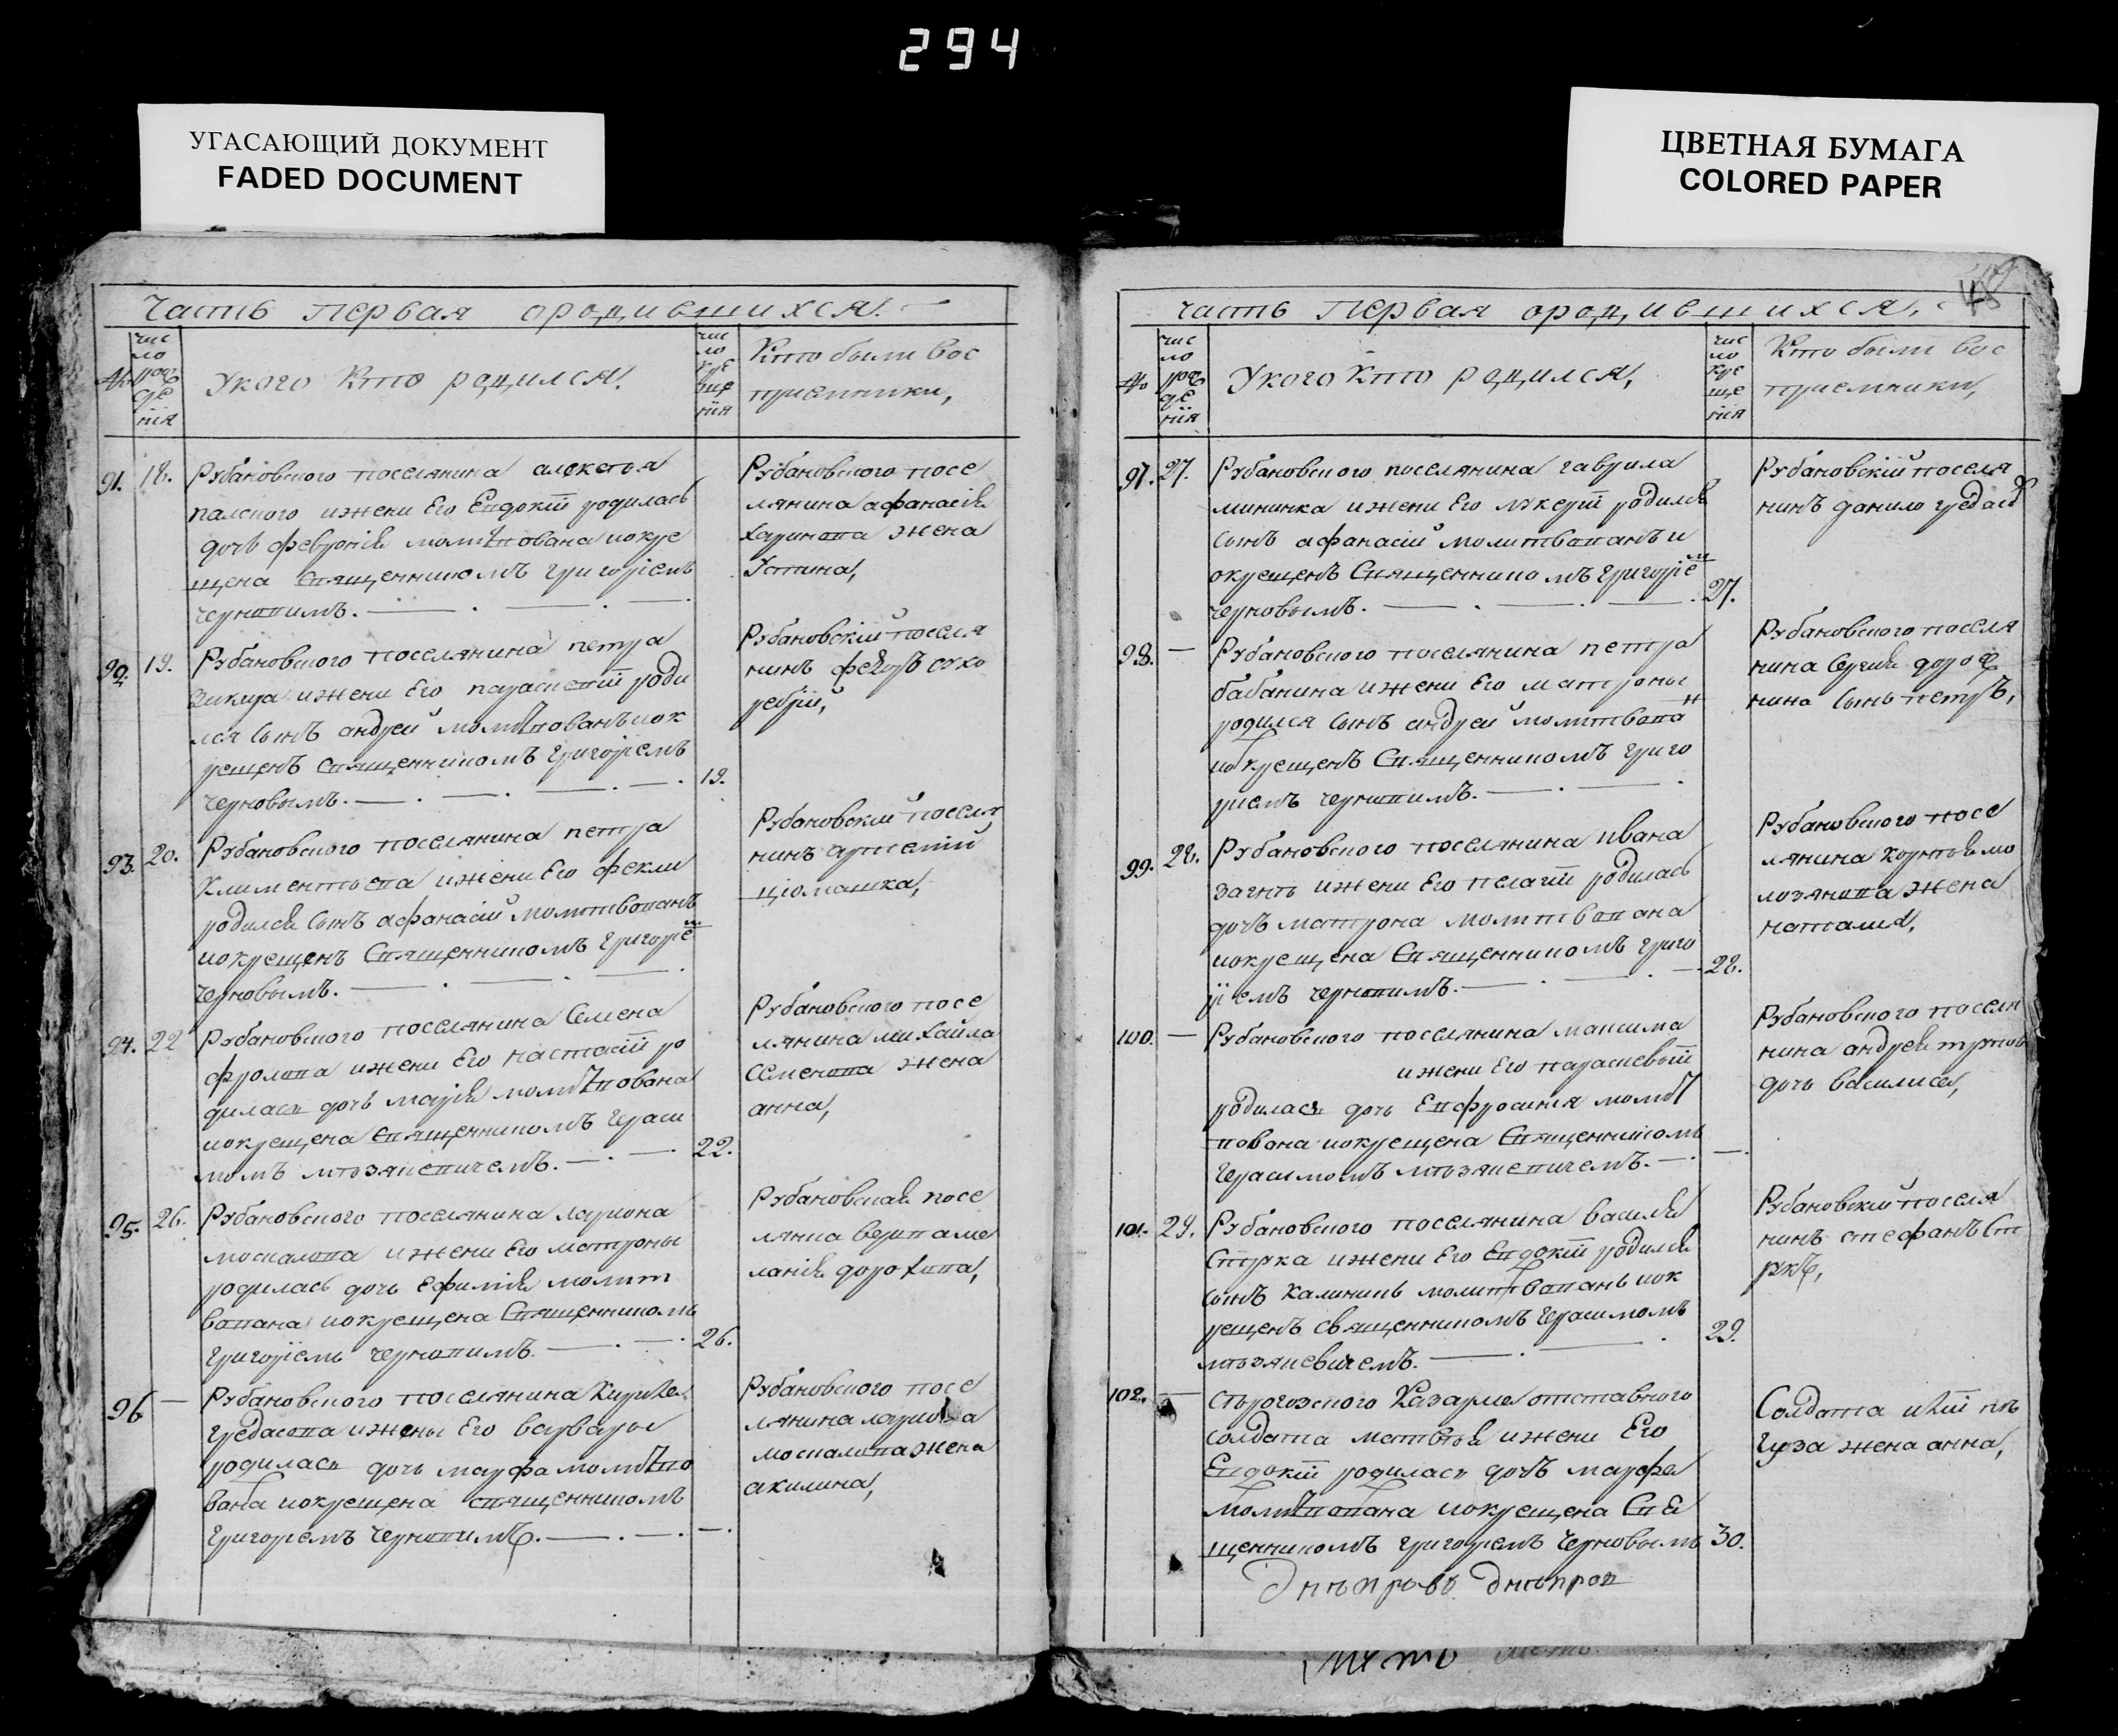 294
УГАСАЮЩИЙ ДОКУМЕНТ
FADED DOCUMENT
ЦВЕТНАЯ БУМАГА
COLORED PAPER
Часть первая ородившихся.
№
чис
ло
рож
де
нія
Укого Кто родился.
чис
ло
кре
ще
нія
Кто были вос
приемники,
91. 18. Рубановского поселянина алексея
палсного ижени Его Евдокіи родилась
дочь февронія молитвована иокре
щена Священникомъ григоріемъ
черновимъ.
Рубановского посе
лянина афанасія
харинова жена
Устина,
92. 19. Рубановского поселянина петра
ижени Его параскевіи роди
лся сынъ андрей молитвованъ иок
рещенъ Священникомъ григоріемъ
черновымъ. 19.
Рубановскій поселя
нинъ федоръ сухо
ребрій,
93. 20. Рубановского поселянина петра
Климентьева ижени Его фекли
родился сынъ афанасій молитвованъ
иокрещенъ Священникомъ григоріем
черновымъ.
Рубановскій поселя
нинъ артемій
цюмашка,
94. 22 Рубановского поселянина Семена
фролова ижени Его настасіи ро
дилась дочь марія молитвована
иокрещена Священникомъ гераси
момъ мтозяневичемъ. 22.
Рубановского посе
лянина михайла
Семенова жена
анна,
95. 26. Рубановского поселянина лариона
москалова ижени Его матроны
родилась дочь Ефимія молит
вована иокрещена Священникомъ
григоріемъ черновимъ. 26.
Рубановская посе
лянка вдова
ланія дорохова,
96 — Рубановского поселянина Кирила
гредасова ижены Его варвары
родилась дочь марфа молитво
вана иокрещена священникомъ
григоріемъ черновимъ. —.
Рубановского посе
лянина лариона
москалова жена
акилина,
часть Первая ородившихся,
№
чис
ло
рож
де
нія
Укого Кто родился,
чис
ло
кре
ще
нія
Кто были вос
приемники,
97. 27. Рубановского поселянина гаврила
мининка ижени Его родился
сынъ афанасій молитвованъ и
окрещенъ Священникомъ григоріем
черновымъ. 27.
Рубановскій поселя
нинъ данило гредасов
98. — Рубановского поселянина петра
бабанина ижени Его матроны
родился сынъ андрей молитвован
иокрещенъ Священникомъ григо
риемъ черновимъ.
Рубановского поселя
нина Сергия дороф
нина сынъ петръ,
99. 28. Рубановского поселянина ивана
ижени Его пелагіи родилась
дочь матрона молитвована
иокрещена Священникомъ григо
ріемъ черновимъ. 28.
Рубановского посе
лянина
жена
наталия,
100. — Рубановского поселянина максима
ижени Его параскевыи
родилась дочь Евфросиния молит
вована иокрещена Священникомъ
герасимомъ мтозяневичемъ. —.
Рубановского поселя
нина андрея
дочь василиса,
101. 29. Рубановского поселянина василія
Стурка ижени Его Евдокіи родился
сынъ калинникъ молитвованъ иок
рещенъ священникомъ герасимомъ
мтозяневичемъ. 29.
Рубановскій поселя
нинъ стефанъ Ст
102. — отставного
солдата матвея ижени Его
Евдокіи родилась дочь марфа
молитвована иокрещена Свя
щенникомъ григоріемъ черновымъ 30.
Солдата
жена анна,